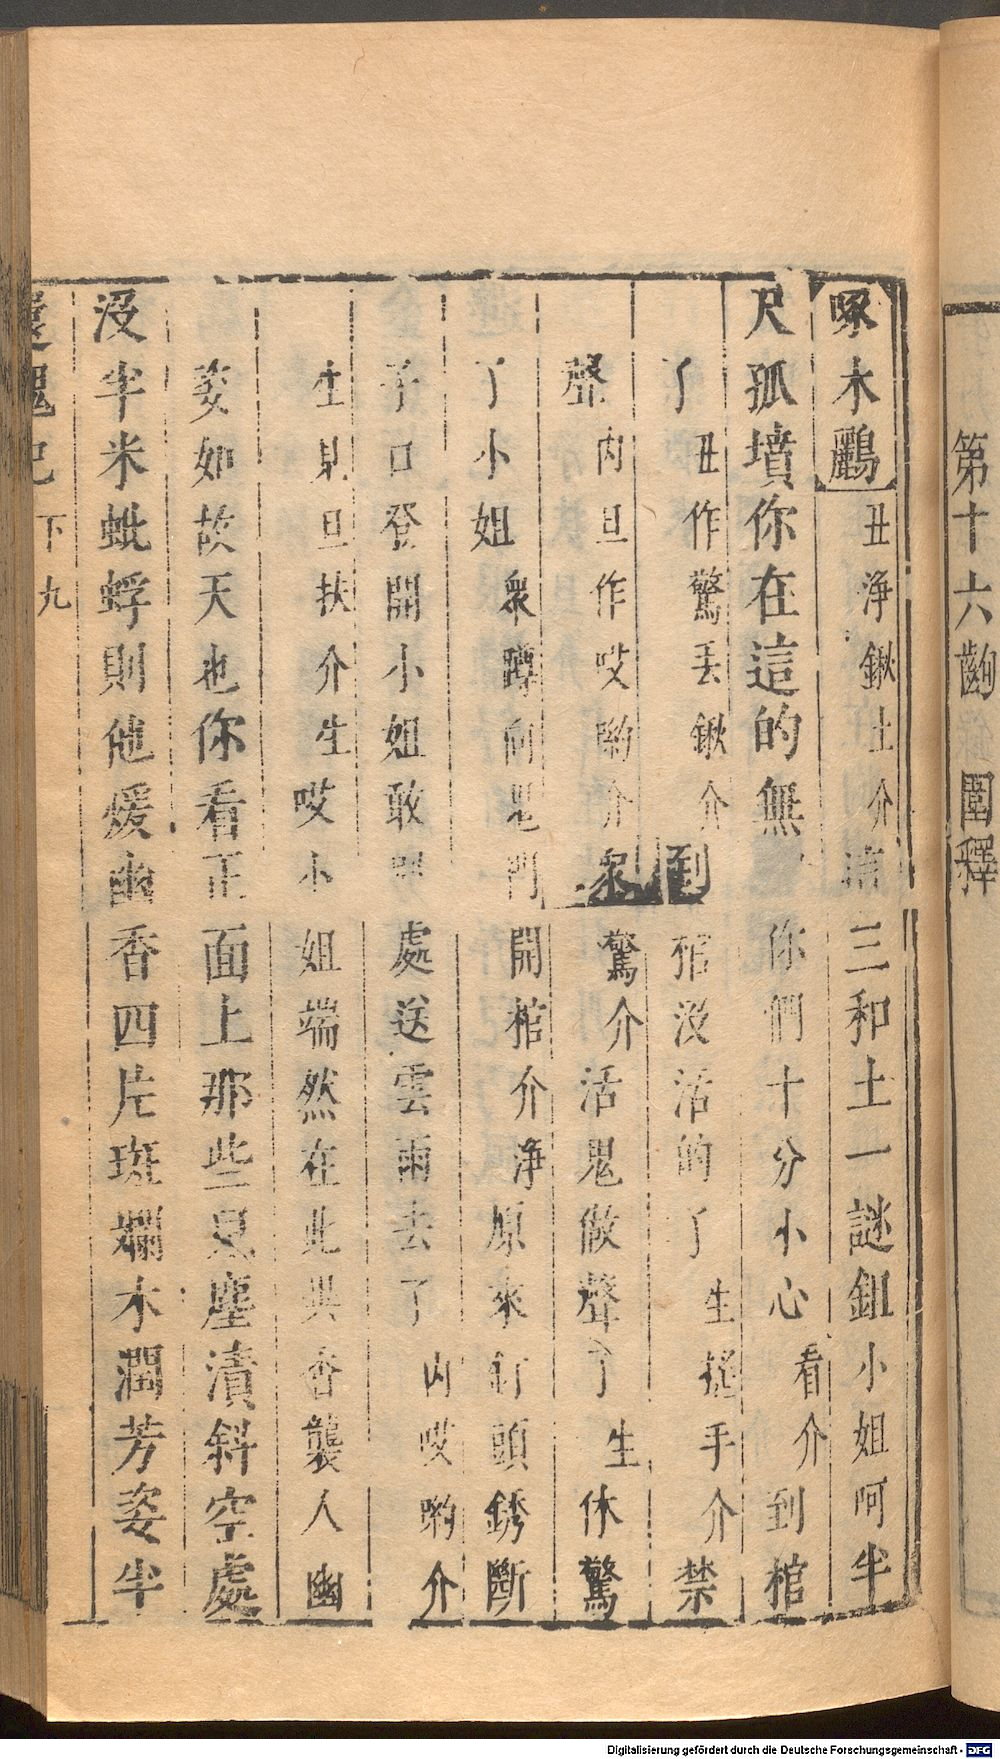 第十六齣
圍釋
啄木鸝丑淨鍬土介 三和土一謎鉏小姐呵半
尺孤墳你在這的無 你們十分小心看介到棺
了丑作驚丟鍬介到棺沒活的了生搖手介禁
聲內旦作哎喲介衆驚介活鬼做聲了生休驚
了小姐衆蹲向鬼門開棺介淨原來釘頭銹斷
子口登開小姐敢別處送雲雨去了内哎喲介
生見旦扶介生哎小姐端然在此異香襲人幽
姿如故天也你看正面上那些兒塵漬斜空處
沒半米蚍蜉則他煖幽香四片斑斕木潤芳姿半
還魂記 下 九
Digitalisierung gefördert durch die Deutsche Forschungsgemeinschaft - DFG